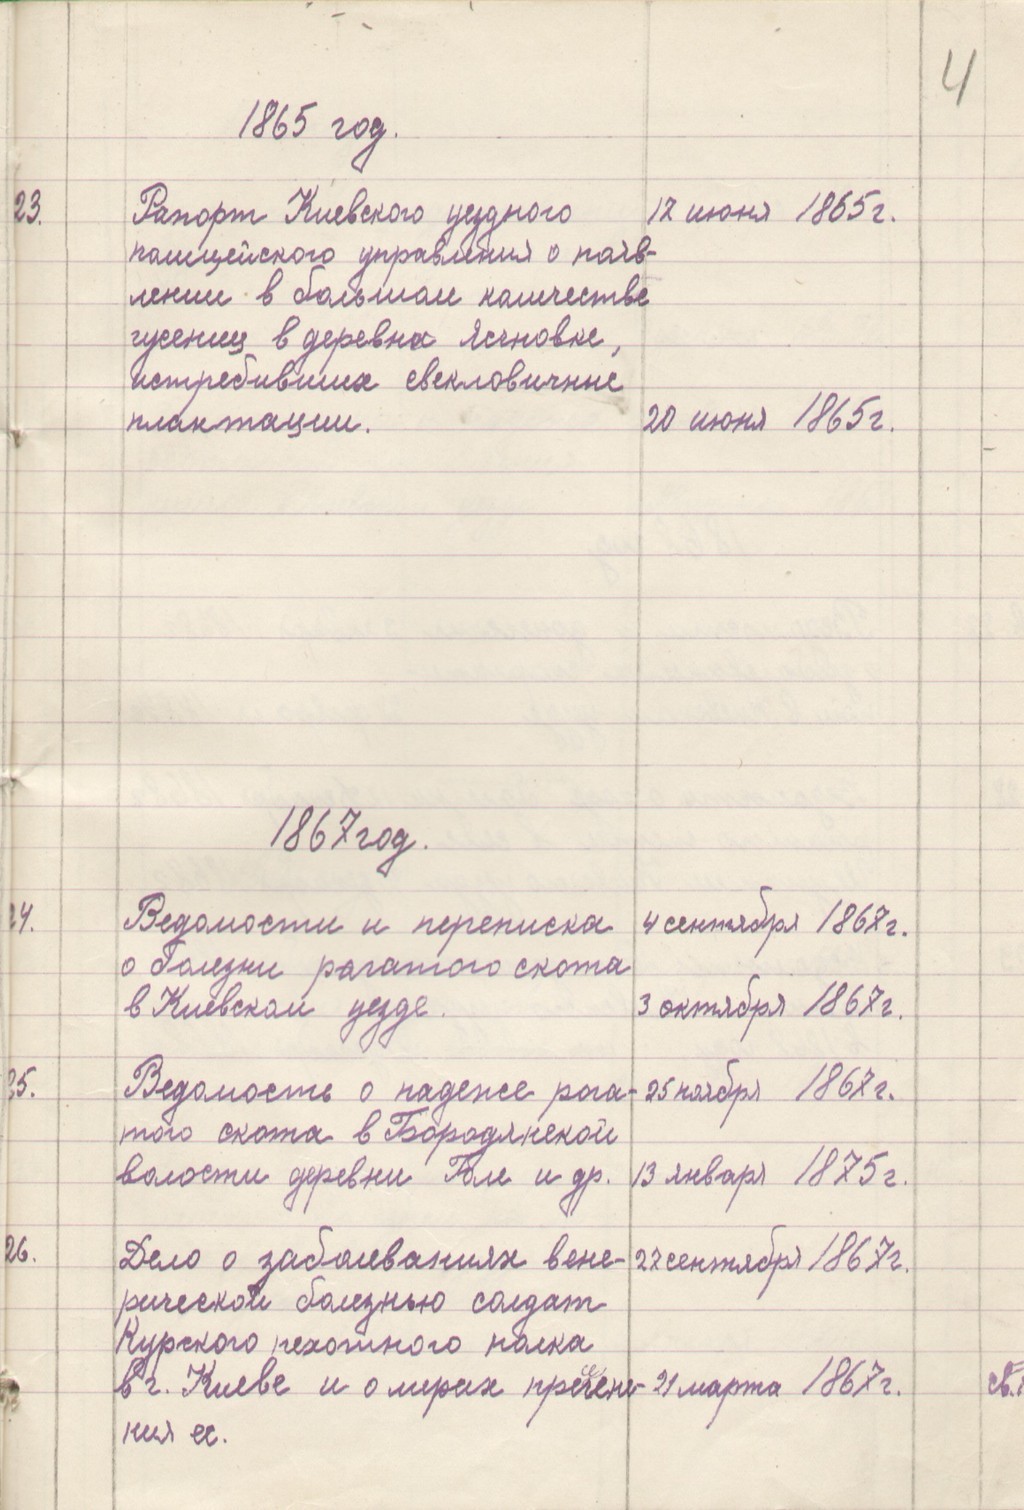 4
1865 год.
23. Рапорт Киевского уездного 12 июня 1865 г.
полицейского управления о появ-
лении в большом количестве
гусениц в деревне Ясновке,
истребивших свекловичные
плантации. 20 июня 1865 г.
1867 год.
24. Ведомости и переписка 4 сентября 1867 г.
о болезни рогатого скота
в Киевском уезде. 3 октября 1867 г.
25. Ведомость о падеже рога- 25 ноября 1867 г.
того скота в Бородянской
волости деревни Гале и др. 13 января 1875 г.
26. Дело о заболеваниях вене- 22 сентября 1867 г.
рической болезнью солдат
Курского пехотного полка
в г. Киеве и о мерах пресече- 21 марта 1867 г.
ния ее.